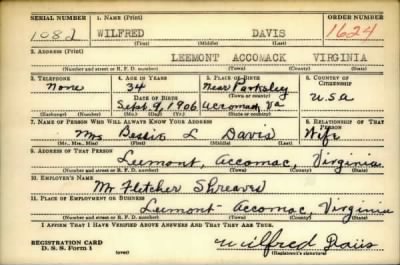 SERIAL NUMBER 1. NAME (Print) ORDER NUMBER
1082 WILFRED DAVIS 1624
(First) (Middle) (Last)
2. ADDRESS (Print)
LEEMONT ACCOMACK VIRGINIA
(Number and street or R. F. D. number) (Town) (County) (State)
3. TELEPHONE 4. AGE IN YEARS 5. PLACE OF BIRTH 6. COUNTRY OF CITIZENSHIP
None 34 Near Parksley
DATE OF BIRTH (Town or county)
Sept. 9, 1906 Accomac, Va U.S.A
(Exchange) (Number) (Mo.) (Day) (Yr.) (State or country)
7. NAME OF PERSON WHO WILL ALWAYS KNOW YOUR ADDRESS 8. RELATIONSHIP OF THAT PERSON
Mrs Bessie L Davis Wife
(Mr., Mrs., Miss) (First) (Middle) (Last)
9. ADDRESS OF THAT PERSON
Leemont, Accomac, Virginia
(Number and street or R. F. D. number) (Town) (County) (State)
10. EMPLOYER'S NAME
Mr Fletcher Shreaves
11. PLACE OF EMPLOYMENT OR BUSINESS
Leemont - Accomac, Virginia
(Number and street or R. F. D. number) (Town) (County) (State)
I AFFIRM THAT I HAVE VERIFIED ABOVE ANSWERS AND THAT THEY ARE TRUE.
REGISTRATION CARD
D. S. S. Form 1 (over) Wilfred Davis
(Registrant's signature)